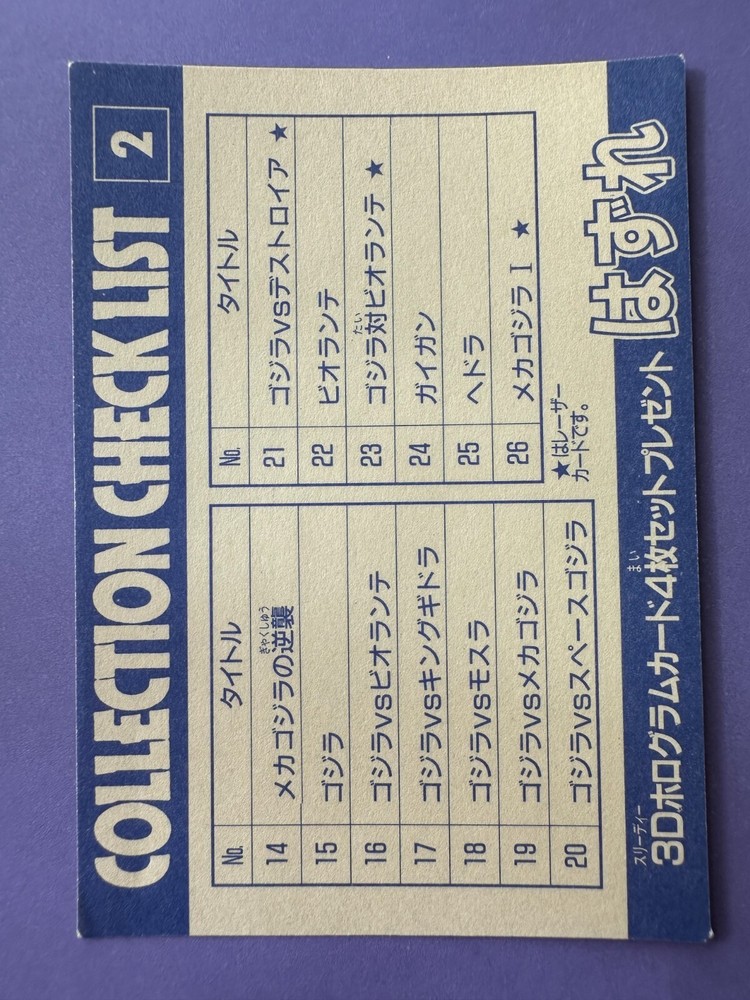 COLLECTION CHECK LIST 2
No. タイトル
14 メカゴジラの逆襲
ぎゃくしゅう
15 ゴジラ
16 ゴジラvsビオランテ
17 ゴジラvsキングギドラ
18 ゴジラvsモスラ
19 ゴジラvsメカゴジラ
20 ゴジラvsスペースゴジラ
No. タイトル
21 ゴジラvsデストロイア ★
22 ビオランテ
23 ゴジラ対ビオランテ ★
たい
24 ガイガン
25 ヘドラ
26 メカゴジラⅠ ★
★はレーザー
カードです。
スリーディー
まい
3Dホログラムカード4枚セットプレゼント はずれ